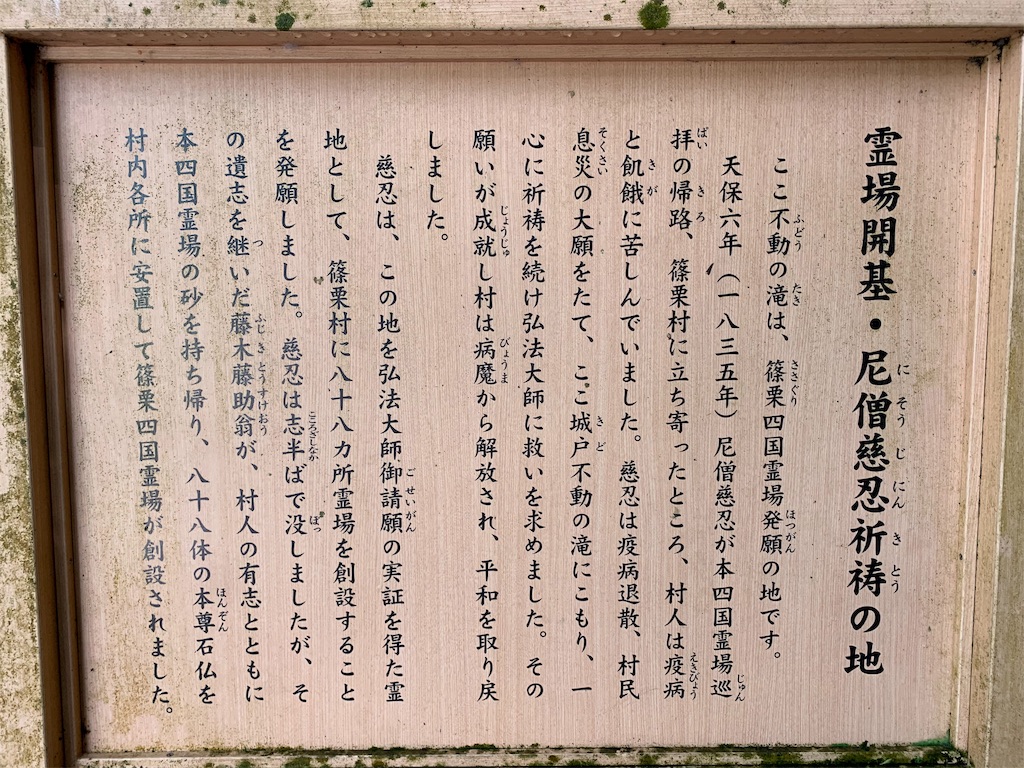 霊場開基・尼僧慈忍祈祷の地
ここ不動の滝は、篠栗四国霊場発願の地です。
天保六年（一八三五年）尼僧慈忍が本四国霊場巡
拝の帰路、篠栗村に立ち寄ったところ、村人は疫病
と飢餓に苦しんでいました。慈忍は疫病退散、村民
息災の大願をたて、ここ城戸不動の滝にこもり、一
心に祈祷を続け弘法大師に救いを求めました。その
願いが成就し村は病魔から解放され、平和を取り戻
しました。
慈忍は、この地を弘法大師御請願の実証を得た霊
地として、篠栗村に八十八カ所霊場を創設すること
を発願しました。慈忍は志半ばで没しましたが、そ
の遺志を継いだ藤木藤助翁が、村人の有志とともに
本四国霊場の砂を持ち帰り、八十八体の本尊石仏を
村内各所に安置して篠栗四国霊場が創設されました。